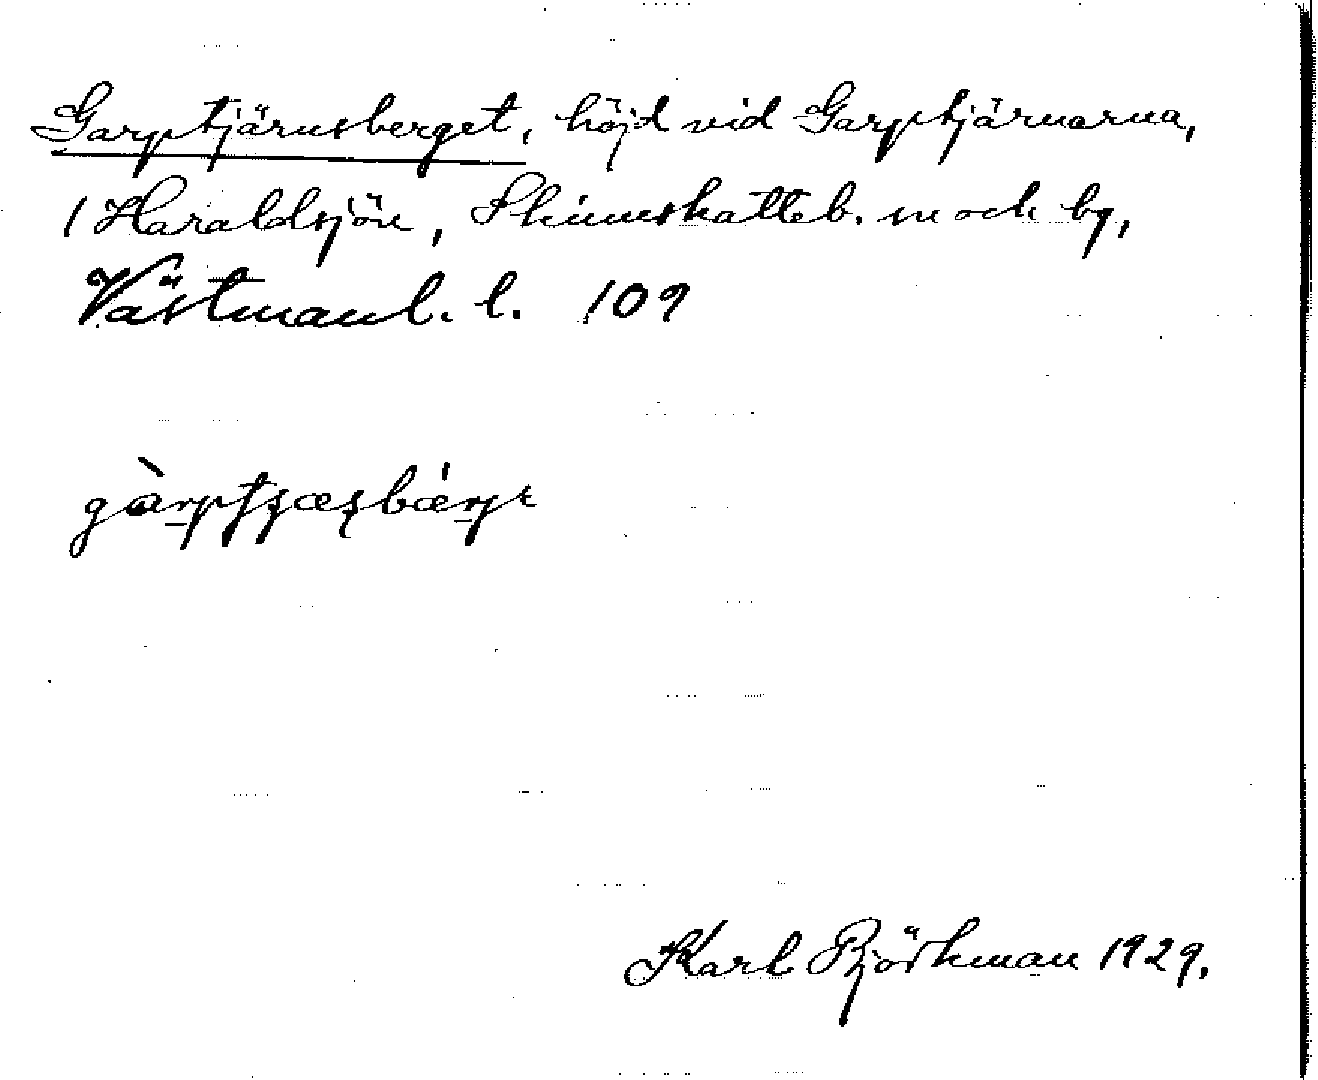 Garptjärnsberget, höjd vid Garptjärnarna,
1 Haraldsjön, Skinnskatteb. sn och by,
Västmanl. l. 109
Karl Björkman 1929.